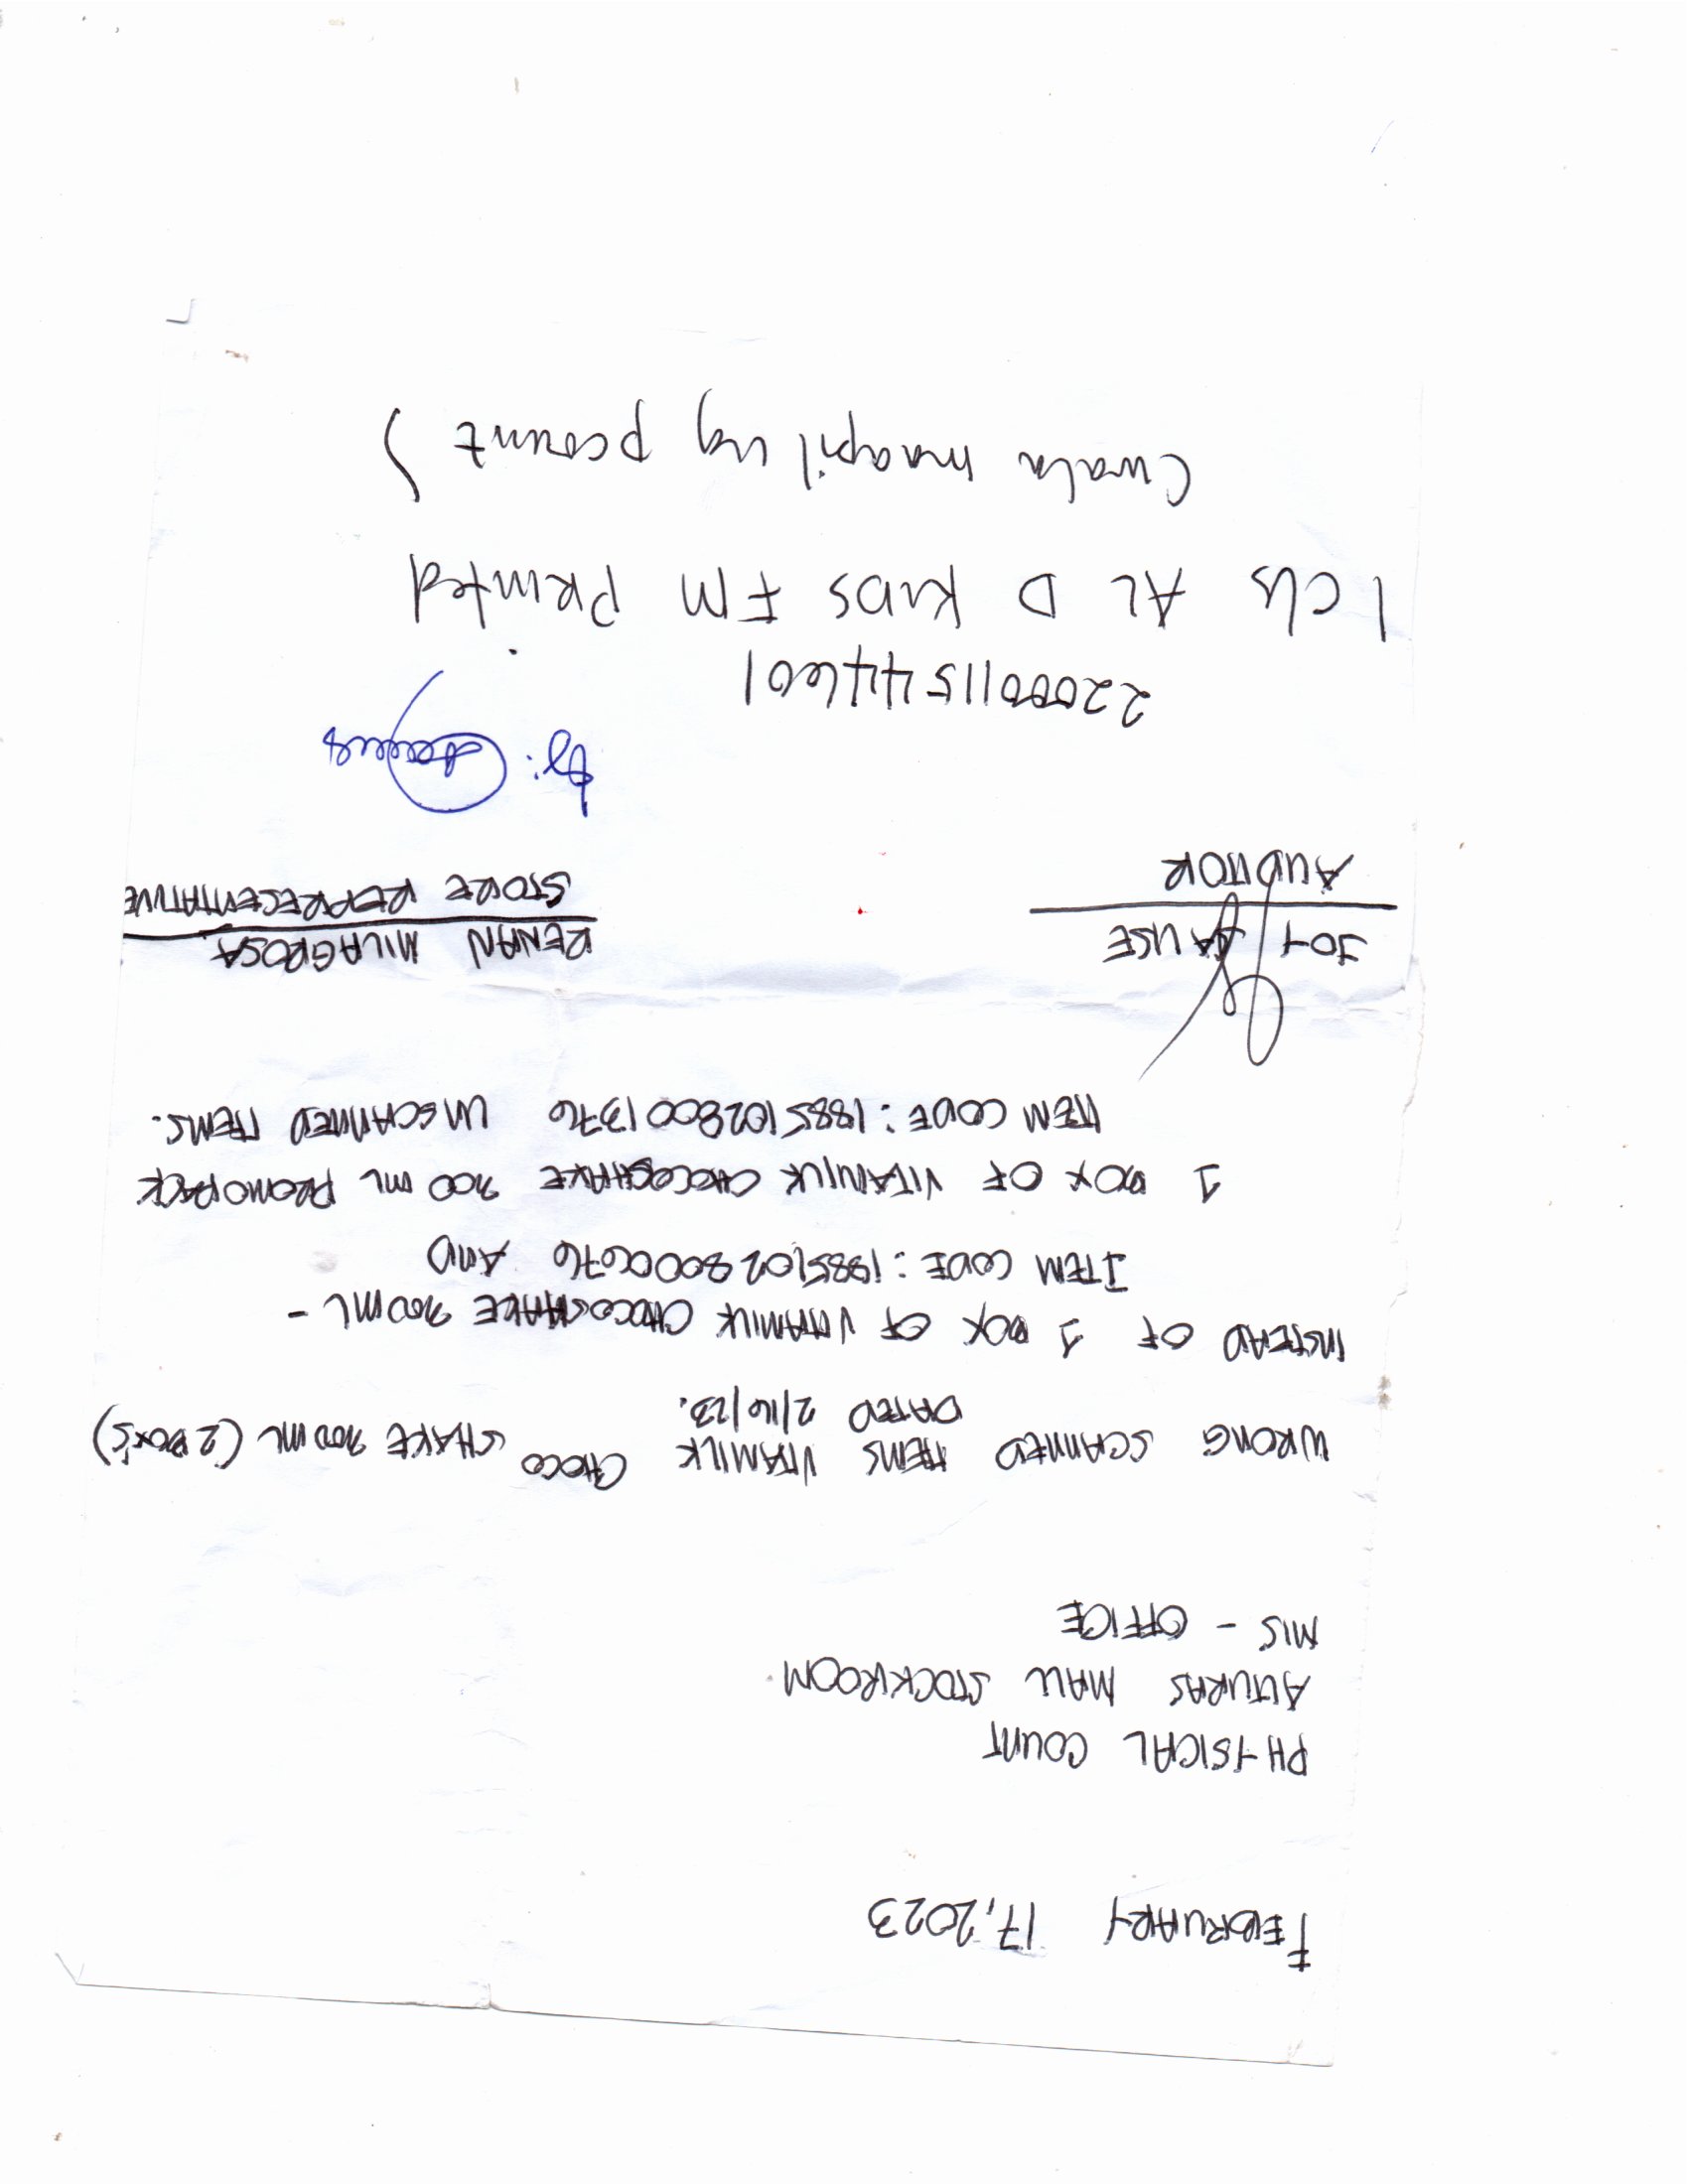 FEBRUARY 17, 2023
PHYSICAL COUNT
ALTURAS MALL STOCKROOM
MIS - OFFICE
WRONG SCANNED ITEMS VITAMILK CHOCO SHAKE 300 ML (2 BOX'S)
DATED 2/16/23.
INSTEAD OF 1 BOX OF VITAMILK CHOCOSHAKE 300ML -
ITEM CODE : 18851028000676 AND
1 BOX OF VITAMILK CHOCOSHAKE 300 ML PROMOPACK
ITEM CODE : 18851028001376 UNSCANNED ITEMS.
JOY GAUSE
AUDITOR
RENAN MILAGROSA
STORE REPRECENTATIVE
by:
220001154601
1 cls AL D KIDS FM Printed
(wala maapil ug pcount)